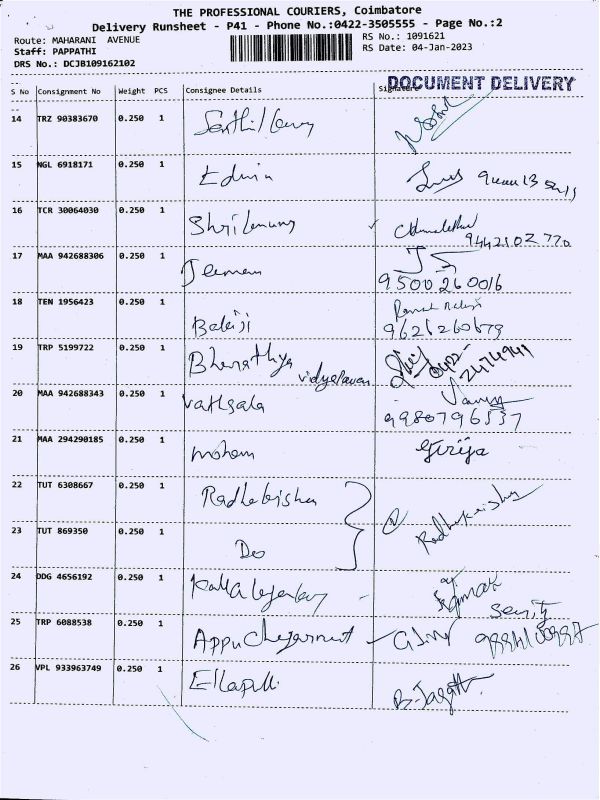 THE PROFESSIONAL COURIERS, Coimbatore
Delivery Runsheet - P41 - Phone No.:0422-3505555 - Page No.:2
Route: MAHARANI AVENUE
RS No.: 1091621
Staff: PAPPATHI
RS Date: 04-Jan-2023
DRS No.: DCJB109162102
DOCUMENT DELIVERY
S No Consignment No Weight PCS Consignee Details Signature
14 TRZ 90383670 0.250 1
15 NGL 6918171 0.250 1 Edwin
16 TCR 30064030 0.250 1
9442102770
17 MAA 942688306 0.250 1
9500260016
18 TEN 1956423 0.250 1 Balaji
9626260679
19 TRP 5199722 0.250 1 Bharathya vidyabavan 0422-2474941
20 MAA 942688343 0.250 1 vathsala
9980796537
21 MAA 294290185 0.250 1 mohan Girija
22 TUT 6308667 0.250 1 Radhakrishna
23 TUT 869350 0.250 1 Do Radhakrishna
24 DDG 4656192 0.250 1
25 TRP 6088538 0.250 1
26 VPL 933963749 0.250 1